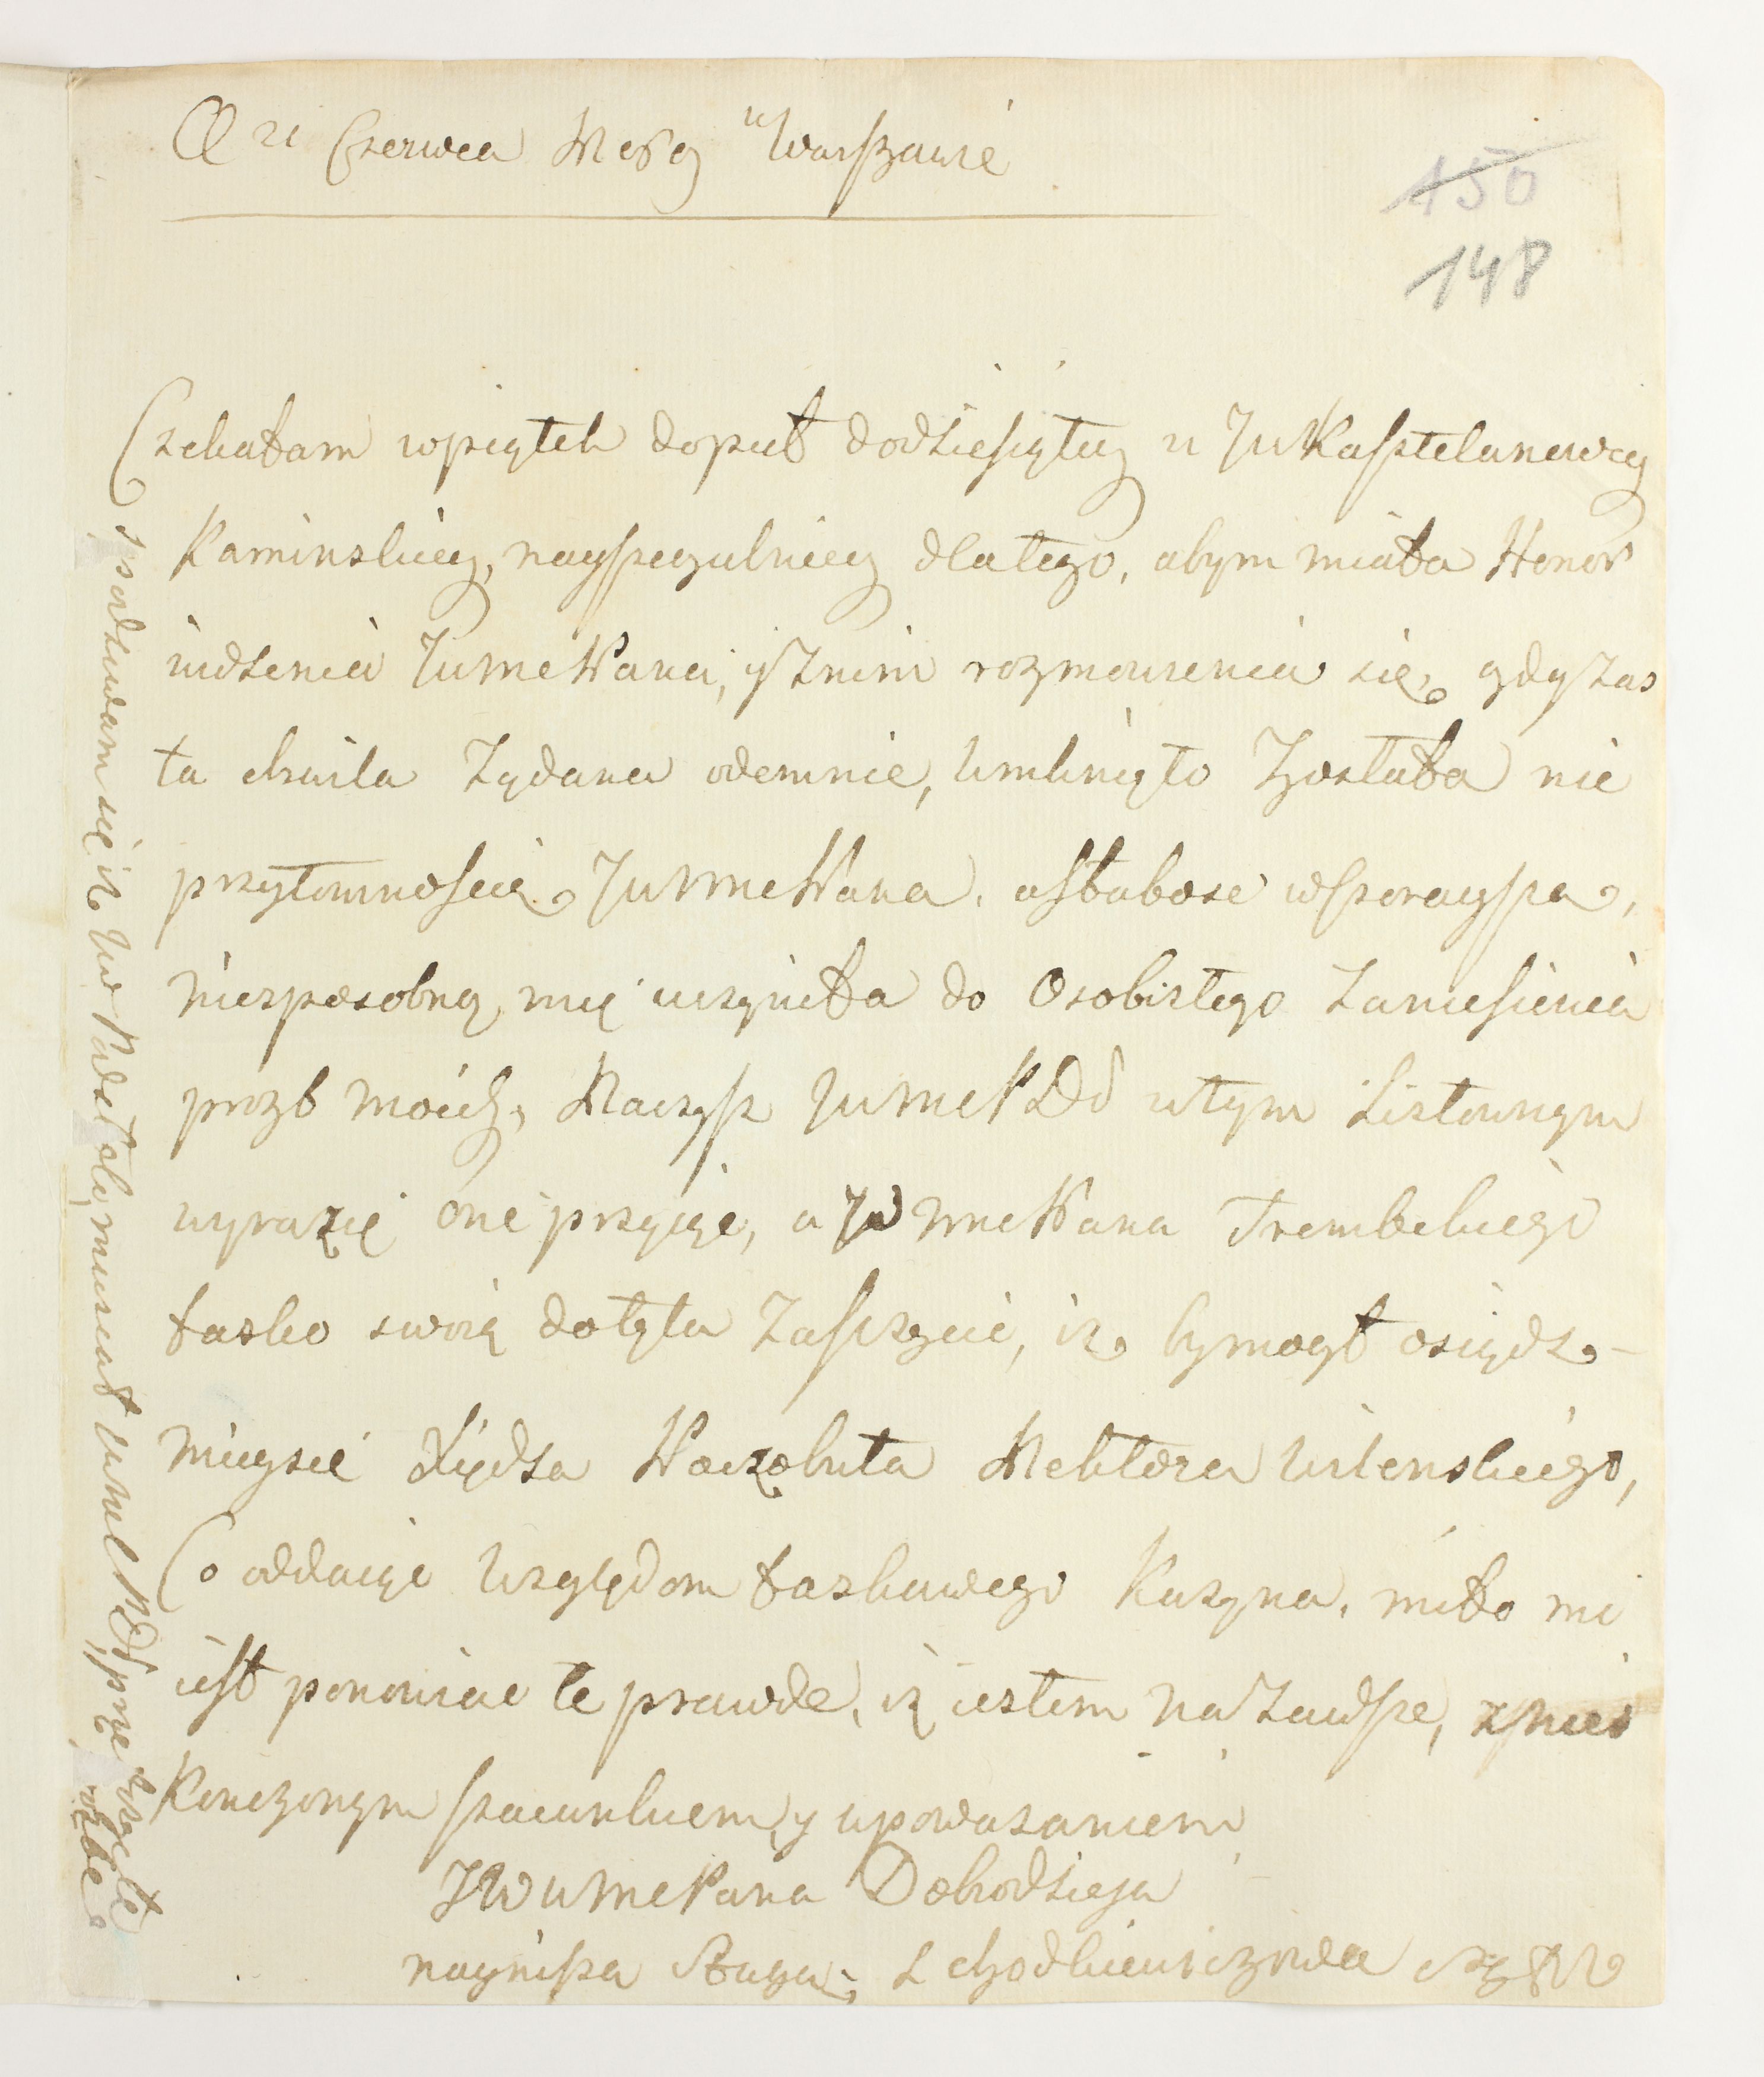 D 21 Czerwca w Warszawie
150
148
Czekałam wpiątek dopuł dodziesiątey u JWKasztelanowey
Kaminskiey, nayszczegulniey dlatego, abym miała Honor
widzenia JWmePana, y Znim rozmowienia się, gdy Zas
ta chwila Żądana odemnie, Umknięto Została nie
przytomnoscią JWWmePana, asłabosc wszoraysza,
niesposobną mię uczyniła do Osobistego Zaniesienia
prozb moich, Raczysz JWmePDD wtym Listownym
wyrazie one przyiąc, a JWWmePana Trembeckiego
łasko swoią dotyla Zaszczycic, iz bymogł osiądz
mieysce Xiędza Poczobuta Rektora Wilenskiego,
Co oddaiąc Względom łaskawego Kuzyna, miło mi
iest ponowiac te prawde, iz iestem na Zawsze, znies
Konczonym szacunkiem, y upowazaniem
JWWWmePana Dobrodzieja
nayniższa Sługa L Chodkiewiczowa
spodziwam się iz JW Podstoli mieskał WmePDD prze